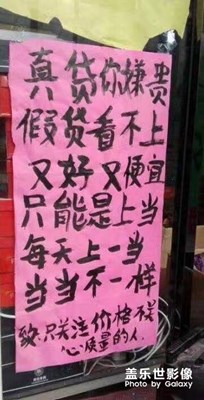 真贷你嫌贵
假货看不上
又好又便宜
只能是上当
每天上一当
当当不一样
致:只关注价格不关
心质量的人.
盖乐世影像
Photo by Galaxy